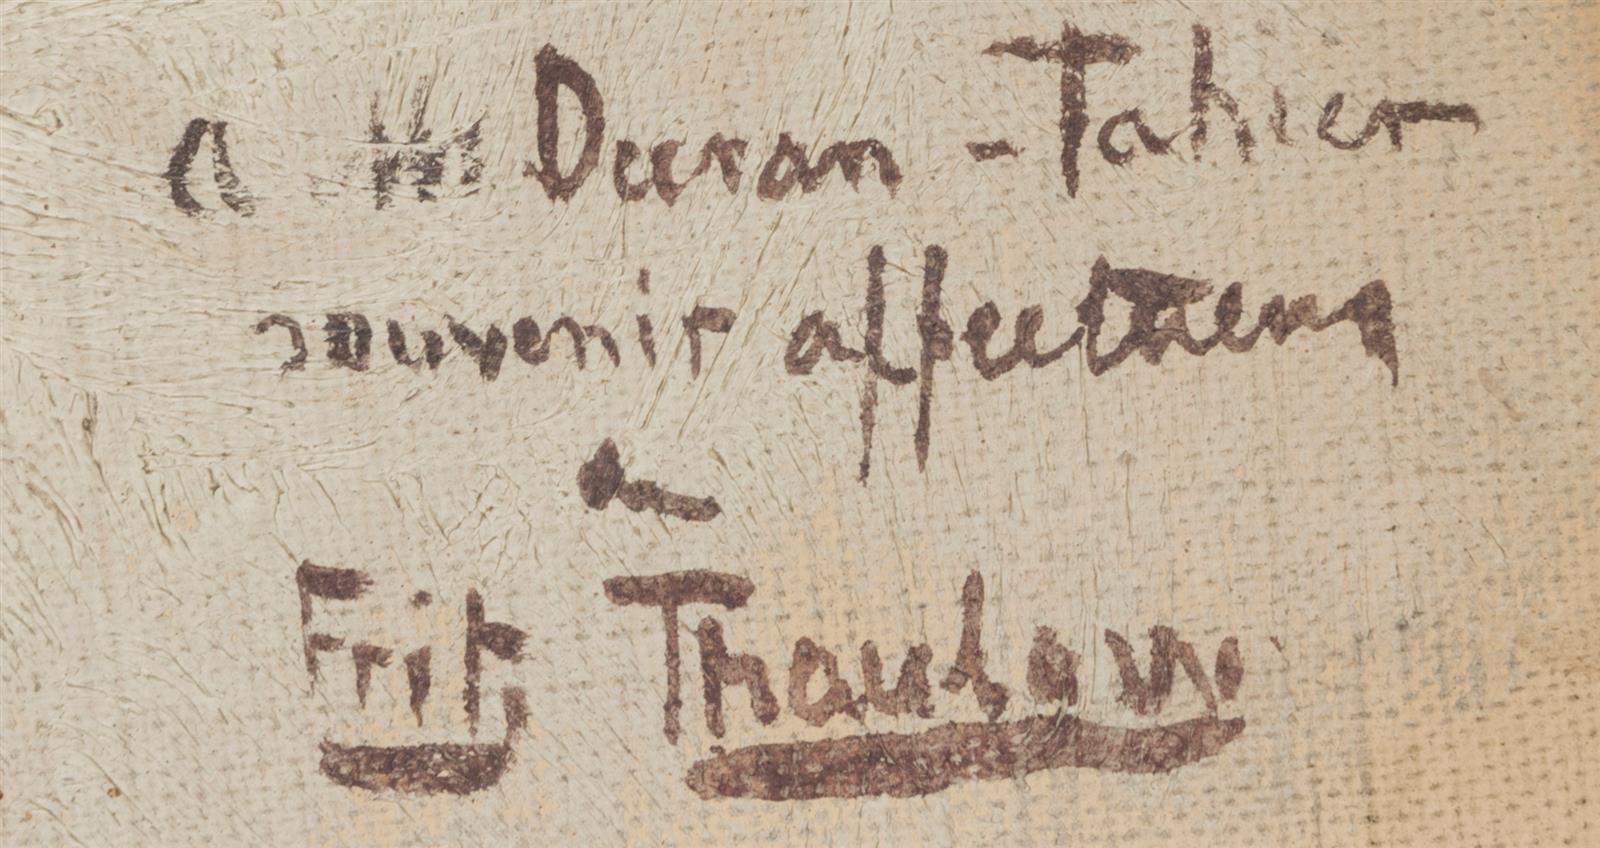 a M Duran-Tahier
souvenir affectueux
Frits Thaulow